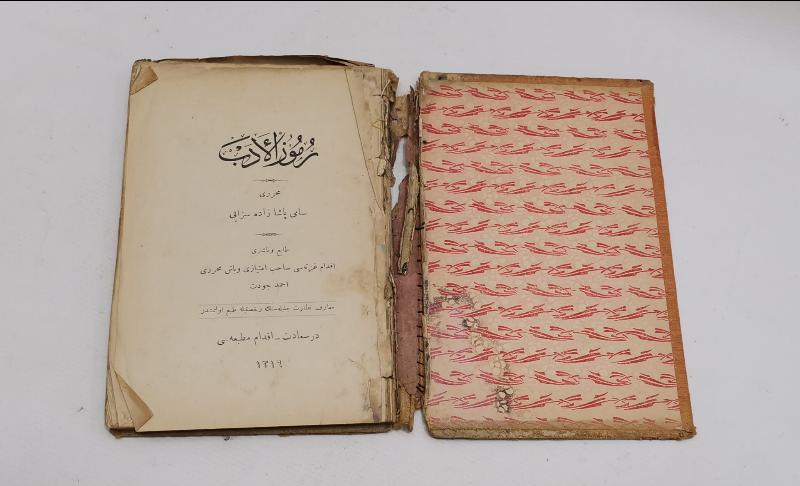 رُمُوزُ الأَدَبْ
محرری
سامی پاشا زاده سزائی
طابع و ناشری
اقدام غزته‌سی صاحب امتیازی و باش محرری
احمد جودت
معارف نظارت جلیله‌سنك رخصتیله طبع اولنمشدر
در سعادت ـ اقدام مطبعه سی
١٣١٦